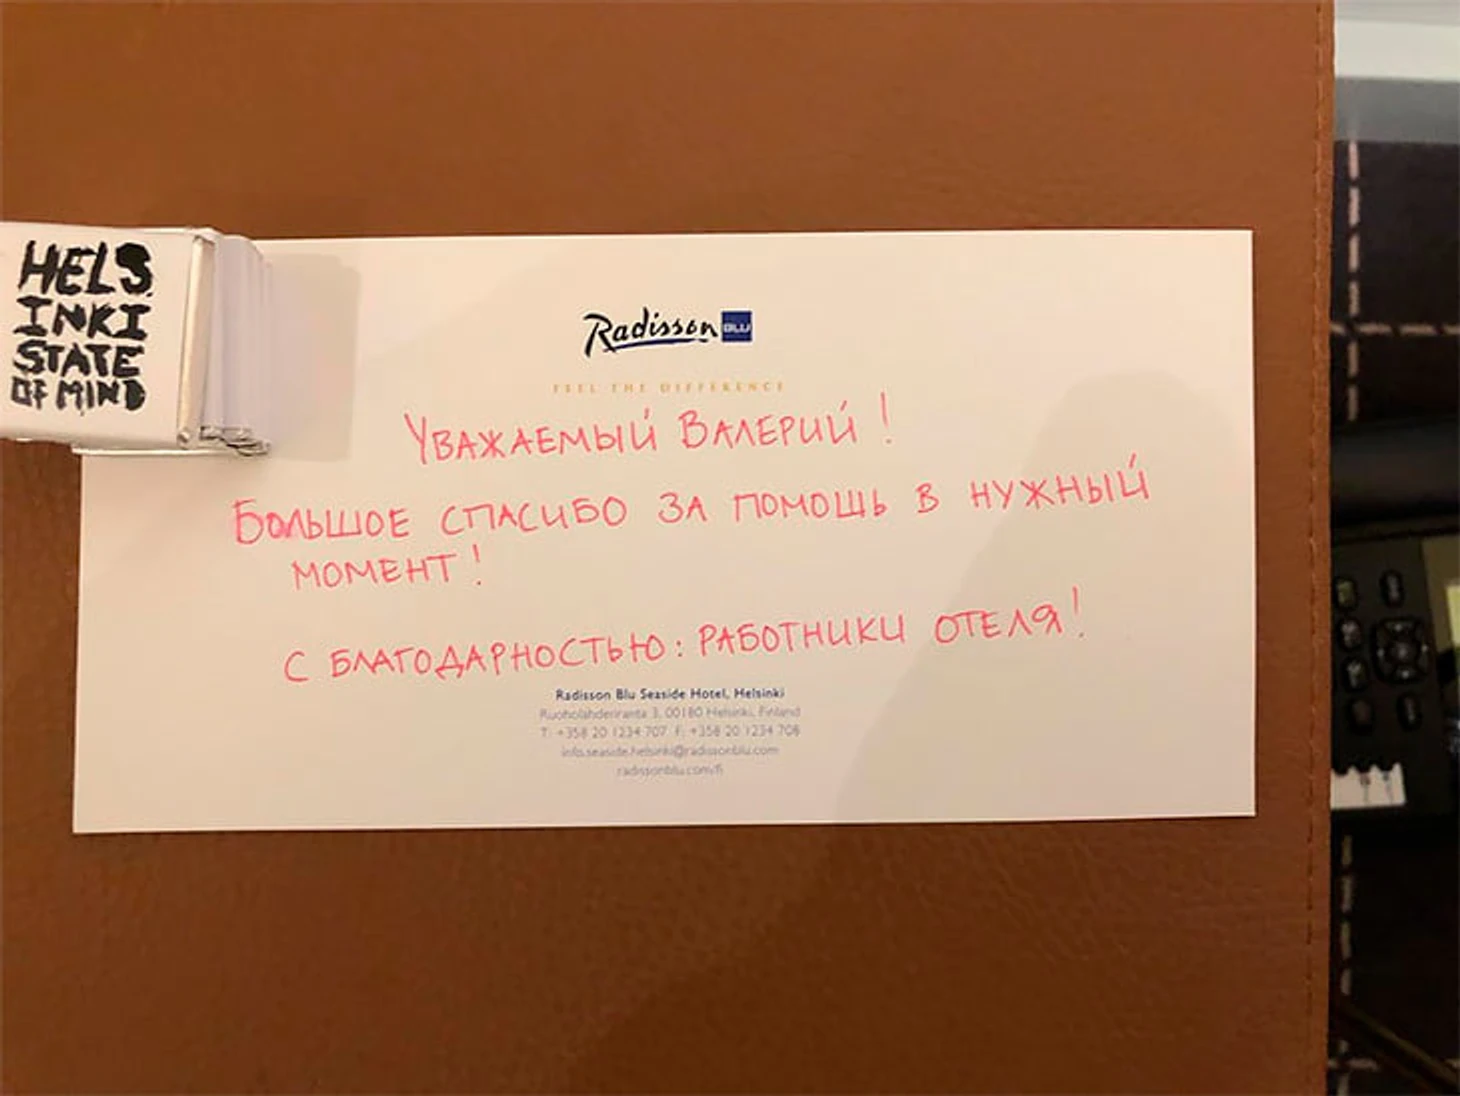 HELS
INKI
STATE
OF MIND
Radisson BLU
FEEL THE DIFFERENCE
Уважаемый Валерий!
Большое спасибо за помощь в нужный
момент!
С благодарностью: работники отеля!
Radisson Blu Seaside Hotel, Helsinki
Ruoholahdenranta 3, 00180 Helsinki, Finland
T: +358 20 1234 707 F: +358 20 1234 708
info.seaside.helsinki@radissonblu.com
radissonblu.com/fi